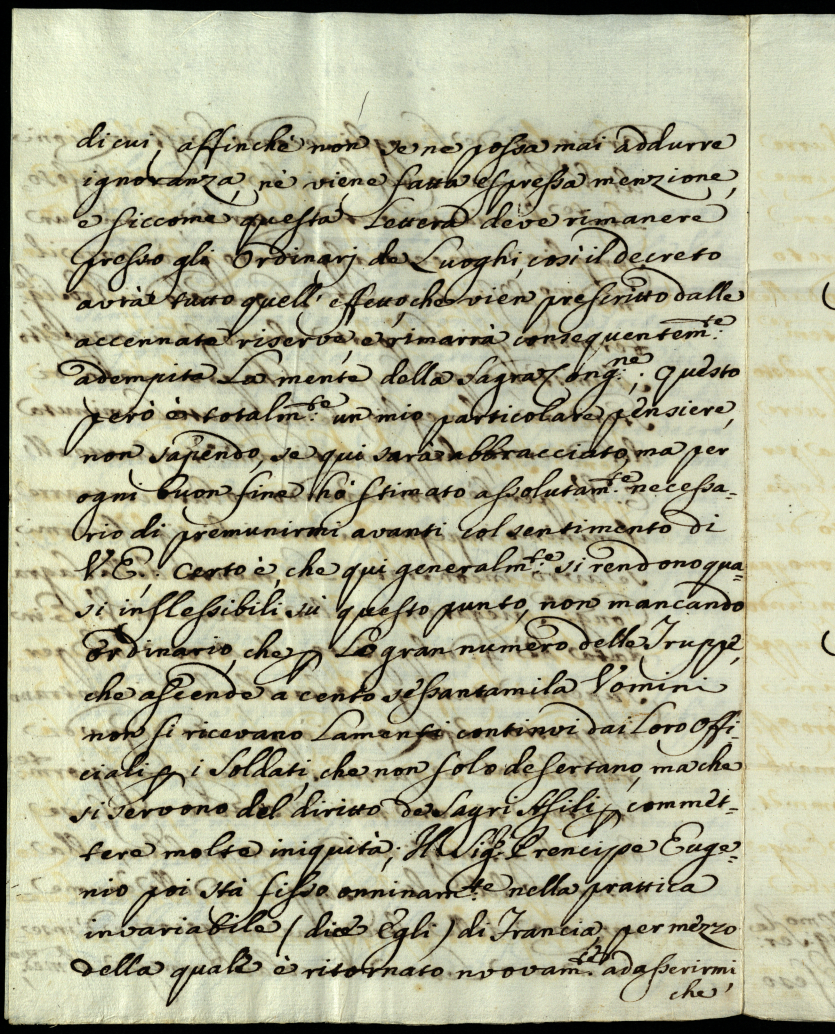 di cui, affinchè non se ne possa mai addurre
ignoranza, nè viene fatta espressa menzione,
e siccome questa Lettera deve rimanere
presso gli Ordinarj de Luoghi, così il decreto
avrà tutto quell' effetto, che vien prescritto dalle
accennate riserve, e rimarrà conseguentem.te
adempita La mente della Sagra Cong.ne; Questo
però è totalm.te un mio particolare pensiere,
non sapendo, se qui sarà abbracciato, ma per
ogni buon fine hò stimato assolutam.te necessa-
rio di premunirmi avanti col sentimento di
V.E.. Certo è, che qui generalm.te si rendono qua-
si inflessibili sù questo punto, non mancando
Ordinario, che p Lo gran numero delle Truppe,
che ascende a cento sessantamila Uomini
non si ricevano Lamenti continui dai Loro Offi-
ciali p i Soldati, che non solo desertano, ma che
si servono del diritto de Sagri Asili p commet-
tere molte iniquità; Il Sig.r Prencipe Euge-
nio poi stà fisso onninam.te nella prattica
invariabile (dice Egli) di Francia, per mezzo
della quale è ritornato nuovam.te ad asserirmi
che